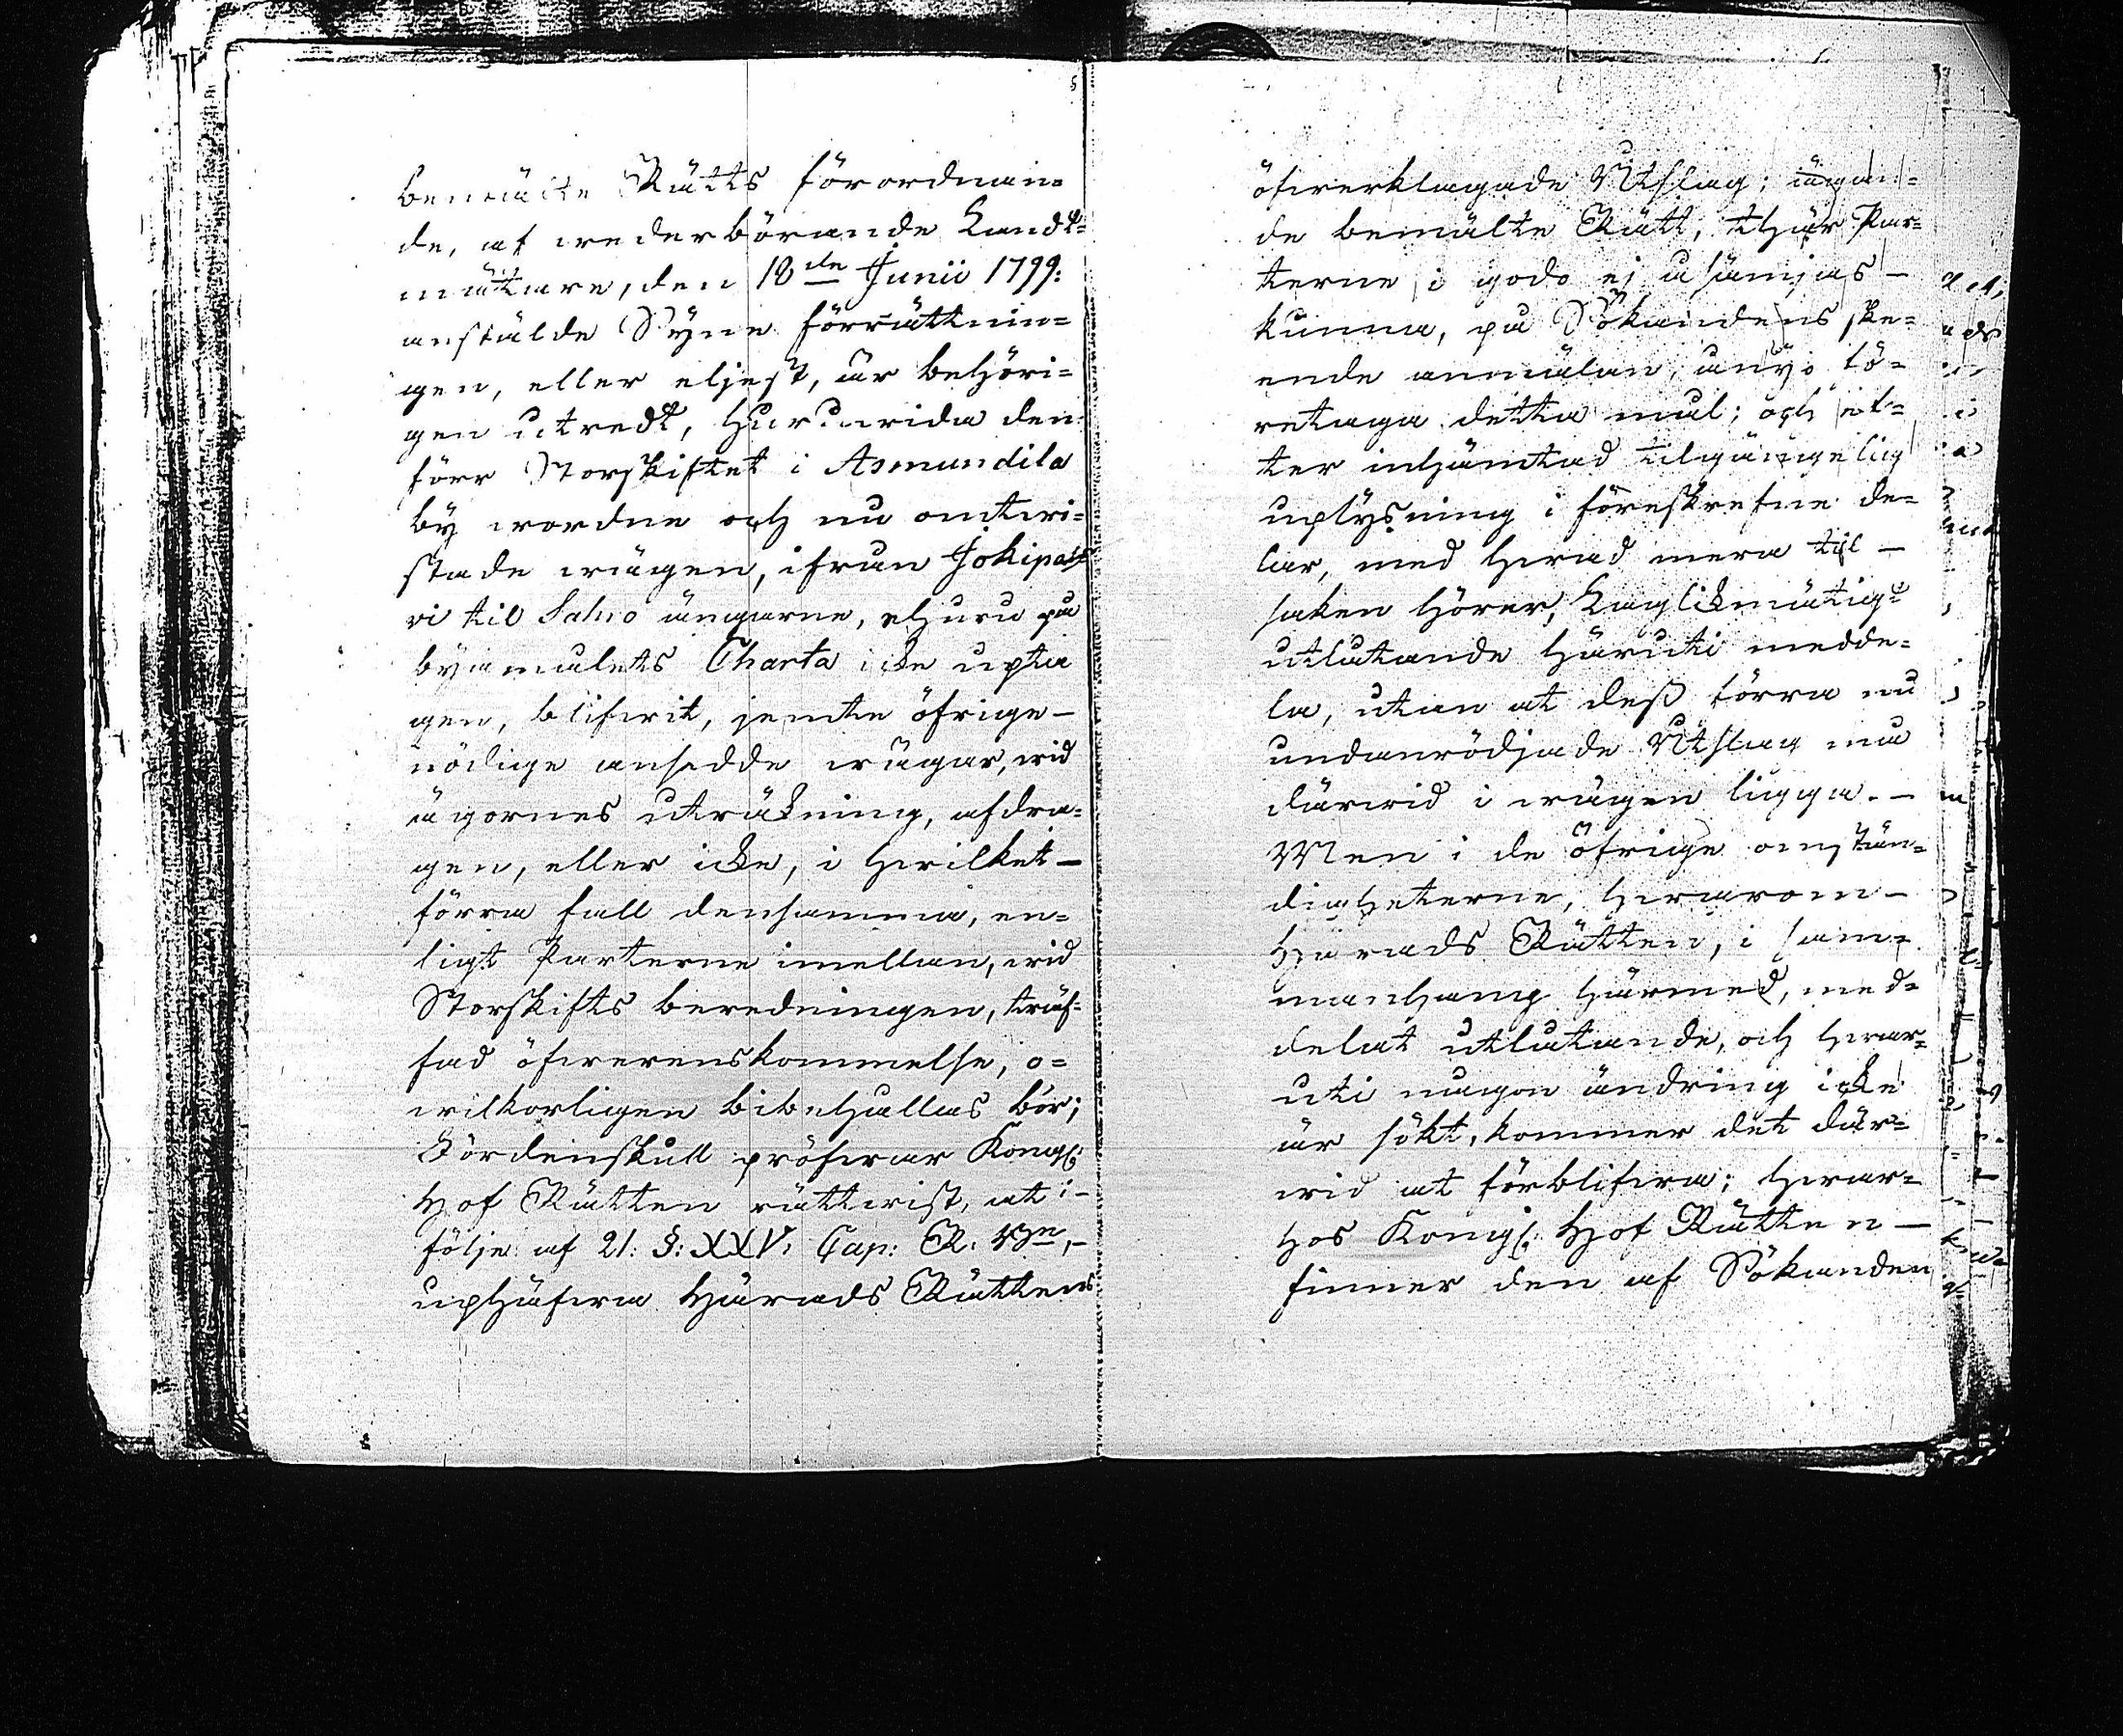 bemälte Rätts förordnan=
de, af wederbörande Landt=
mätare, den 18de Junii 1799:
anstälde Syne förrättnin=
gen, eller eljest, är behöri=
gen utredt, huruwida den
förr Storskiftet i Asmundila
by wordne och nu omtwi=
stade wägen, ifrån Jokipal
vi til Salvo ängarne, ehuru på
byamålets Charta icke upta
gen, blifwit, jemte öfrige –
nödige ansedde wägar, wid
ägornes uträkning, afdra=
gen, eller icke, i hwilket –
förra fall densamma, en=
ligt Parterne imellan, wid
Storskifts beredningen, träf=
fad öfwerenskommelse, o=
wilkorligen bibehållas bör;
Fördenskull pröfwar Kongl:
Hof Rätten rättwist, at i –
följe af 21. §: XXV. Cap: R. Bn, –
uphäfwa Härads Rättens
öfwerklagade Utslag; ägan=
de bemälte Rätt, thär Par=
terne i godo ej åsämjas –
kunna, på Sökandens ske=
ende anmälan, ånyo fö=
retaga detta mål; och ef=
ter inhämtad tilgängelig
uplysning i föreskrefne de=
lar, med hwad mera til –
saken hörer, Laglikmätigt
utlåtande häruti medde=
la, utan at dess förra nu
undanrödjade Utslag må
därwid i wägen ligga. –
Men i de öfrige omstän=
digheterne, hwarom –
Härads Rätten, i sam=
manhang härmed, med=
delat utlåtande, och hwar=
uti någon ändring icke
är sökt, kommer det där=
wid at förblifwa; hwar=
hos Kongl: Hof Rätten –
finner den af Sökanden